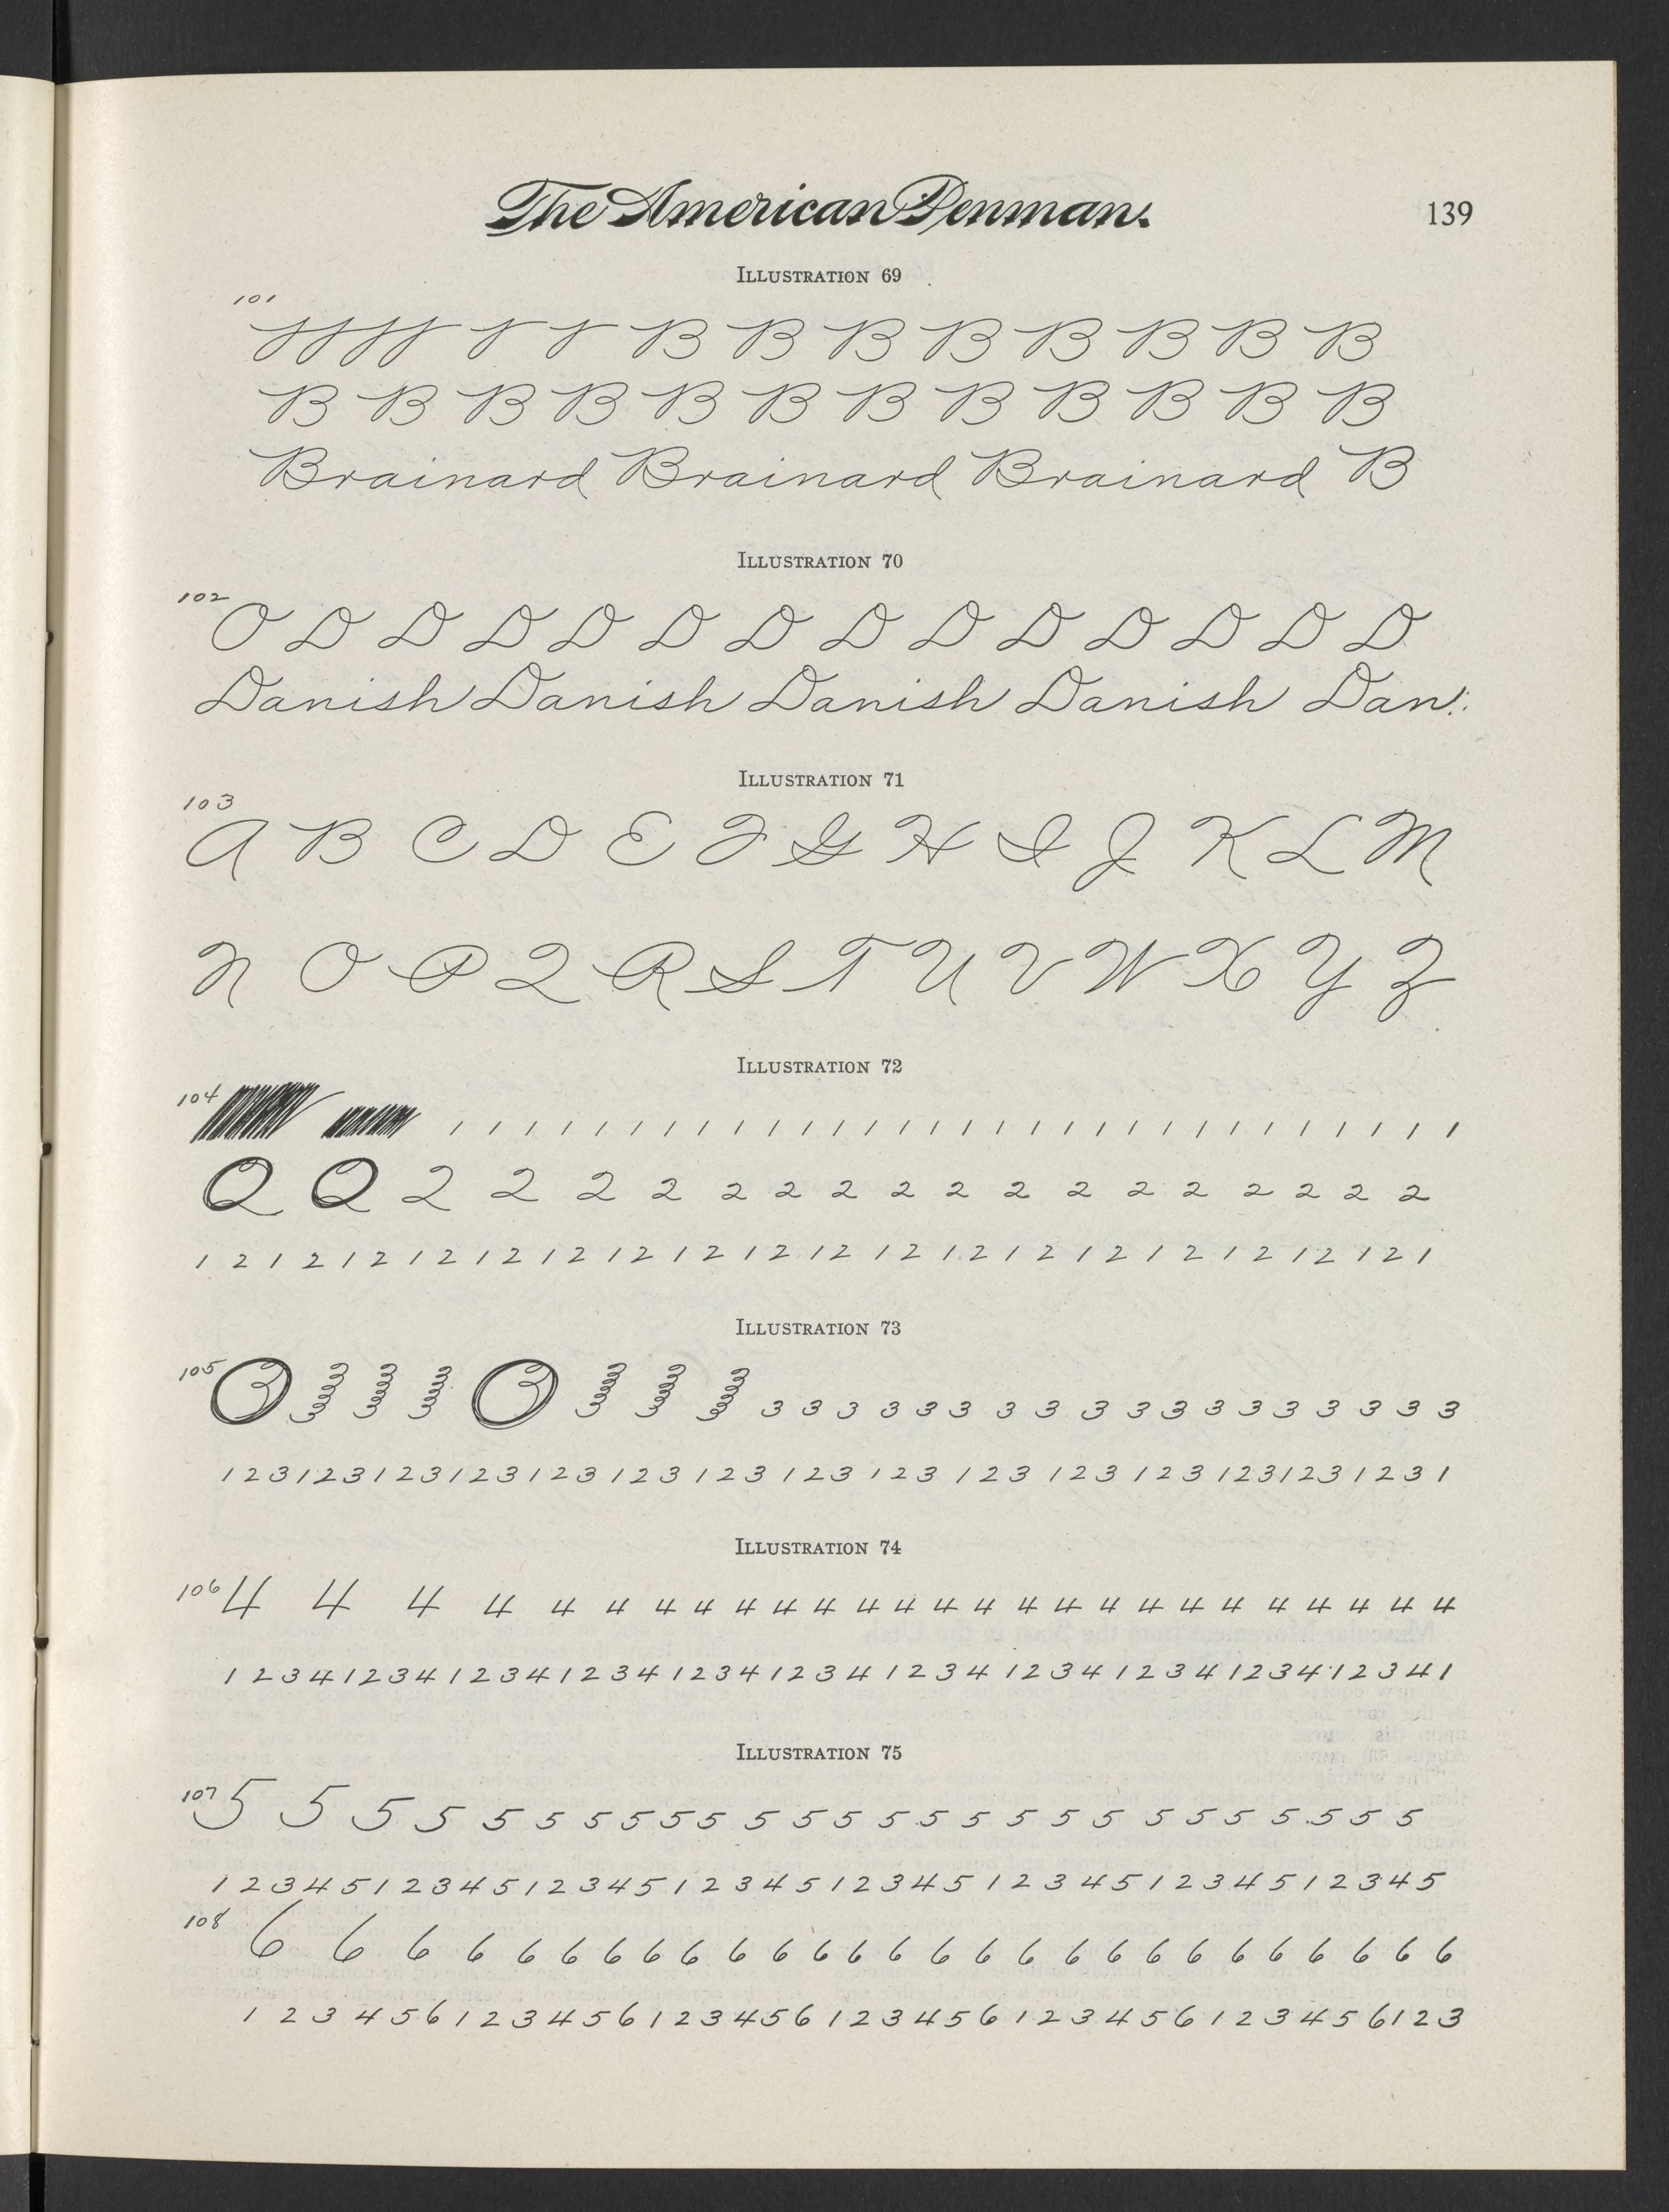 The American Penman.
139
ILLUSTRATION 69
101
B B B B B B B B
B B B B B B B B B B B B
Brainard Brainard Brainard B
ILLUSTRATION 70
102 O D D D D D D D D D D D D D
Danish Danish Danish Danish Dan
ILLUSTRATION 71
103
A B C D E F G H I J K L M
N O P Q R S T U V W X Y Z
ILLUSTRATION 72
104 1 1 1 1 1 1 1 1 1 1 1 1 1 1 1 1 1 1 1 1 1 1 1 1 1 1 1 1 1 1
2 2 2 2 2 2 2 2 2 2 2 2 2 2 2 2 2 2 2
1 2 1 2 1 2 1 2 1 2 1 2 1 2 1 2 1 2 1 2 1 2 1 2 1 2 1 2 1 2 1 2 1 2 1 2 1
ILLUSTRATION 73
105 3 3 3 3 3 3 3 3 3 3 3 3 3 3 3 3 3 3 3 3 3 3 3 3 3 3
1 2 3 1 2 3 1 2 3 1 2 3 1 2 3 1 2 3 1 2 3 1 2 3 1 2 3 1 2 3 1 2 3 1 2 3 1 2 3 1 2 3 1 2 3 1
ILLUSTRATION 74
106 4 4 4 4 4 4 4 4 4 4 4 4 4 4 4 4 4 4 4 4 4 4 4 4 4 4
1 2 3 4 1 2 3 4 1 2 3 4 1 2 3 4 1 2 3 4 1 2 3 4 1 2 3 4 1 2 3 4 1 2 3 4 1 2 3 4 1 2 3 4 1
ILLUSTRATION 75
107 5 5 5 5 5 5 5 5 5 5 5 5 5 5 5 5 5 5 5 5 5 5 5 5 5 5
1 2 3 4 5 1 2 3 4 5 1 2 3 4 5 1 2 3 4 5 1 2 3 4 5 1 2 3 4 5 1 2 3 4 5 1 2 3 4 5
108 6 6 6 6 6 6 6 6 6 6 6 6 6 6 6 6 6 6 6 6 6 6 6 6 6 6 6
1 2 3 4 5 6 1 2 3 4 5 6 1 2 3 4 5 6 1 2 3 4 5 6 1 2 3 4 5 6 1 2 3 4 5 6 1 2 3